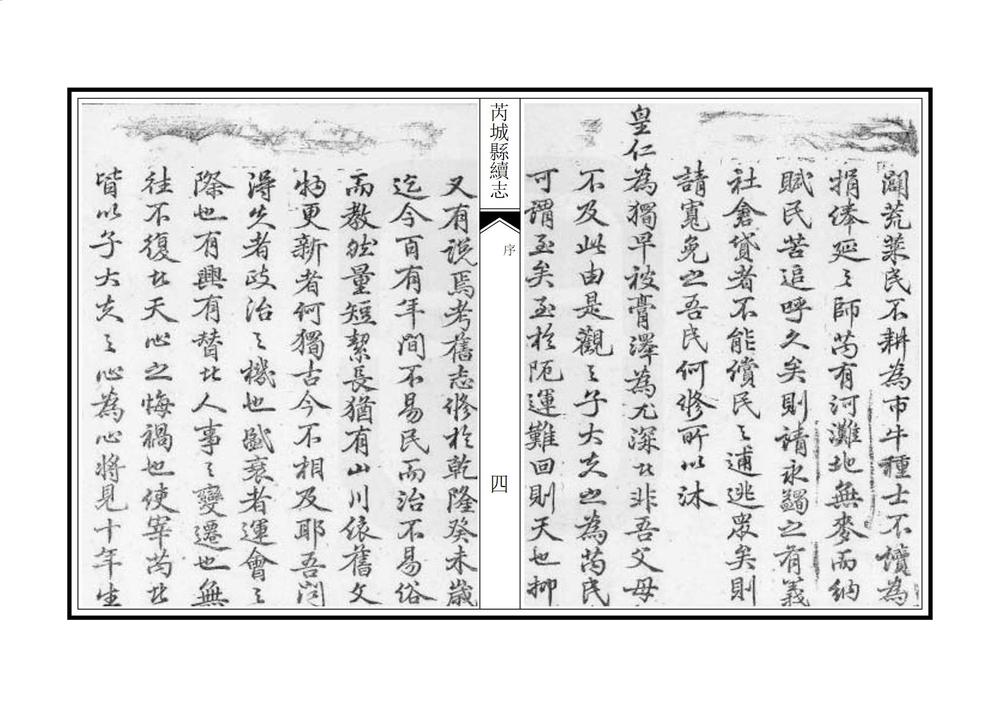 闢荒萊民不耕為市牛種士不讀為
捐俸延之師芮有河灘地無麥而納
賦民苦追呼久矣則請永蠲之有義
社倉貸者不能償民之逋逃眾矣則
請寬免之吾民何修所以沐
皇仁為獨早被膏澤為尤深此非吾父母
不及此由是觀之子大夫之為芮民
可謂至矣至於阨運難回則天也抑
芮城縣續志
序
四
又有說焉考舊志修於乾隆癸未歲
迄今百有年間不易民而治不易俗
而教然量短絜長猶有山川依舊文
物更新者何獨古今不相及耶吾聞
得失者政治之機也盛衰者運會之
際也有興有替此人事之變遷也無
往不復此天心之悔禍也使宰芮此
皆以子大夫之心為心將見十年生